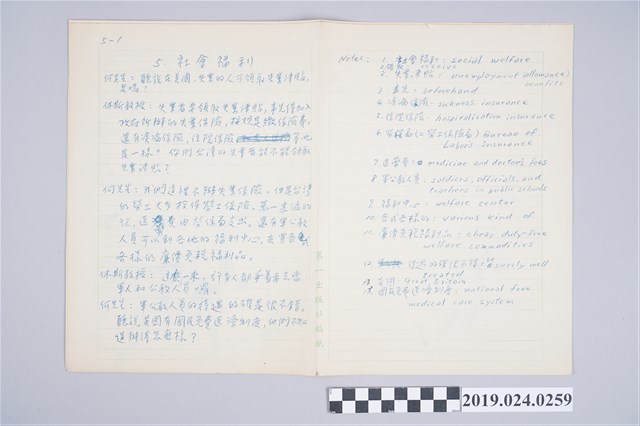 5-1
5. 社會福利
何先生：聽說在美國，失業的人可領取失業津貼，
是嗎？
休斯教授：失業者要領取失業津貼，事先得加入
政府所辦的失業保險，按規定繳保險費。
還有疾病保險，住院保險等也
是一樣。你們台灣的失業者能不能領取
失業津貼？
何先生：我們這裡不辦失業保險。但是台灣
的勞工大多投保勞工保險。萬一患病的
話，醫藥費由勞保局支出。還有軍公教
人員可以到各地的福利中心，去買各式
各樣的廉價免稅福利品。
休斯教授：這麼一來，許多人都爭著要去當
軍人和公教人員囉。
何先生：軍公教人員的待遇的確是很不錯。
聽說英國有國民免費醫療制度，他們
辦得怎麼樣？
第一出版社稿紙
Notes: 1. 社會福利: social welfare
2. 領取: receive
2. 失業津貼: unemployment allowance/
benefits
3. 事先: beforehand
4. 疾病保險: sickness insurance
5. 住院保險: hospitalization insurance
6. 勞保局(=勞工保險局) Bureau of
Labor Insurance
7. 醫藥費: medicine and doctor's fees
8. 軍公教人員: soldiers, officials, and
teachers in public schools
9. 福利中心: welfare center
10. 各式各樣的: various kind of
11. 廉價免稅福利品: cheap duty-free
welfare commodities
12. 待遇的確很不錯: surely well
treated
13. 英國: Great Britain
14. 國民免費醫療制度: national free
medical care system
2019.024.0259